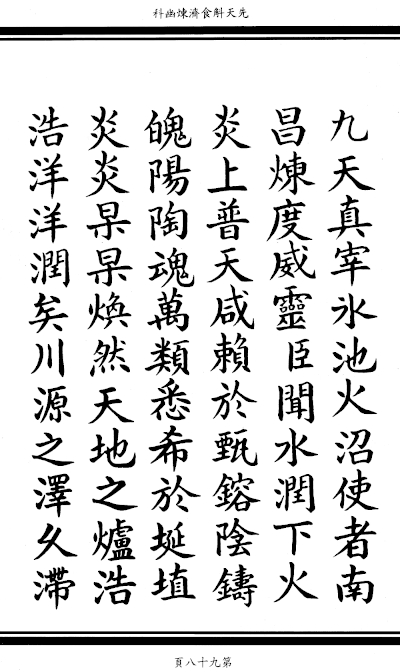 先天斛食濟煉幽科
九天真宰氷池火沼使者南
昌煉度威靈臣聞水潤下火
炎上普天咸賴於甄鎔陰鑄
魄陽陶魂萬類悉希於埏埴
炎炎杲杲煥然天地之爐浩
浩洋洋潤矣川源之澤久滯
第九十八頁